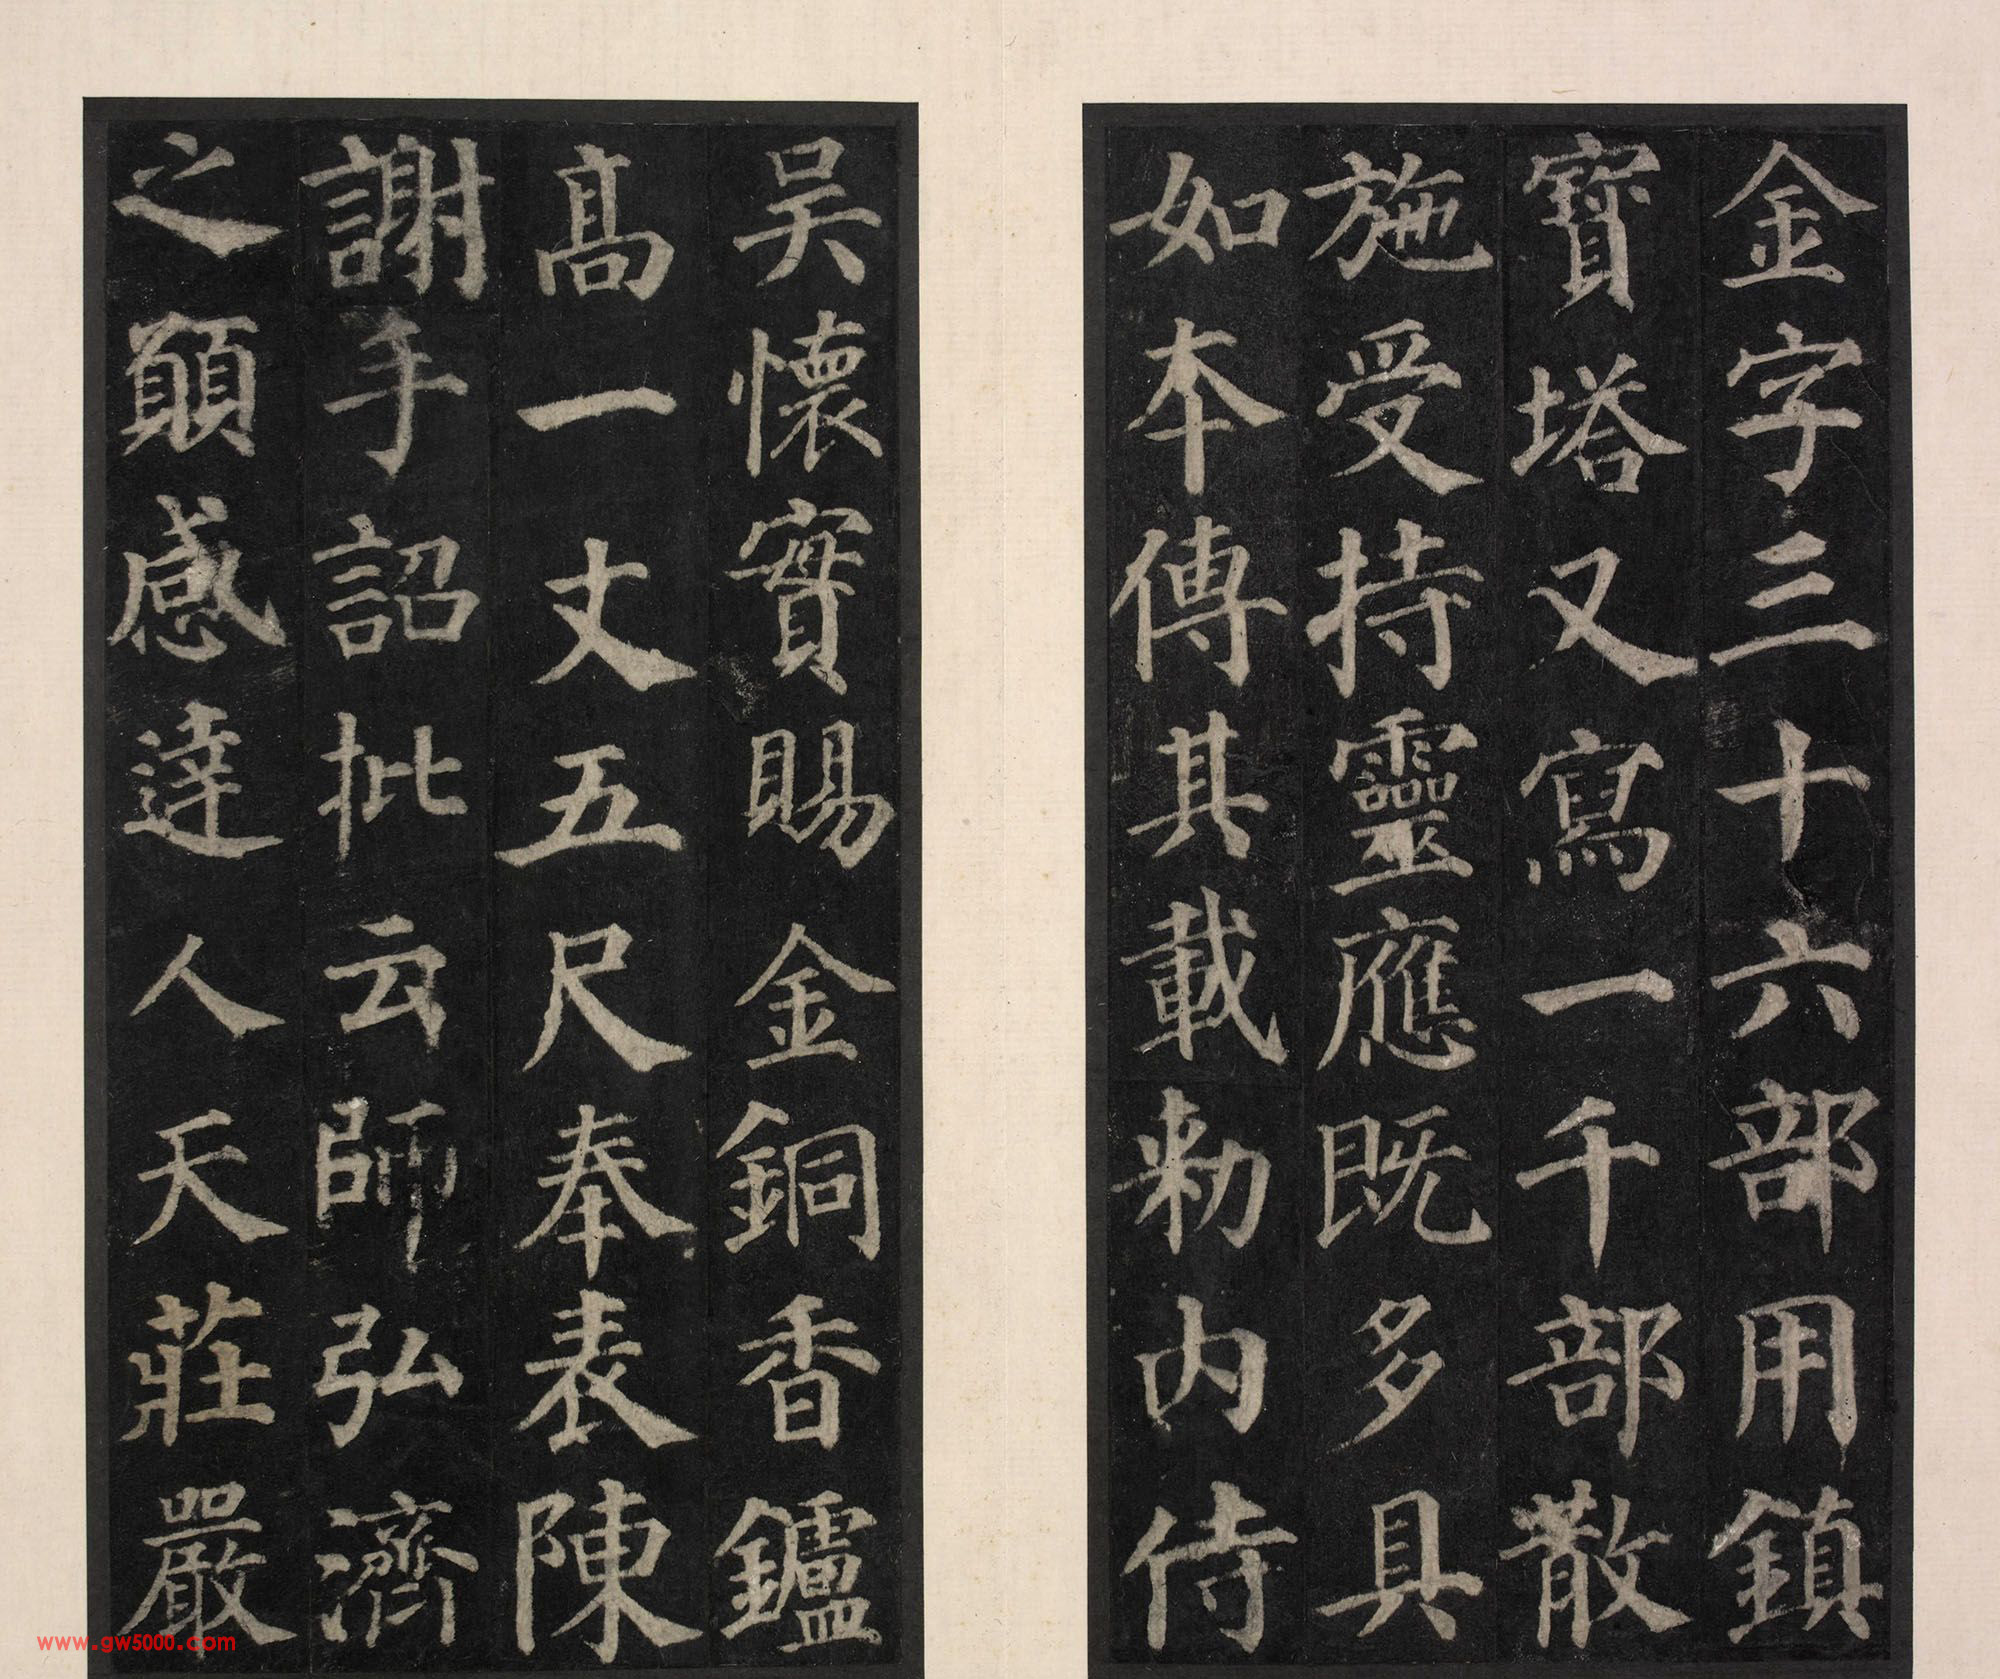 金字三十六部用鎮
寶塔又寫一千部散
施受持靈應既多具
如本傳其載勑內侍
吴懷實賜金銅香鑪
髙一丈五尺奉表陳
謝手詔批云師弘濟
之願感達人天莊嚴
www.gw5000.com